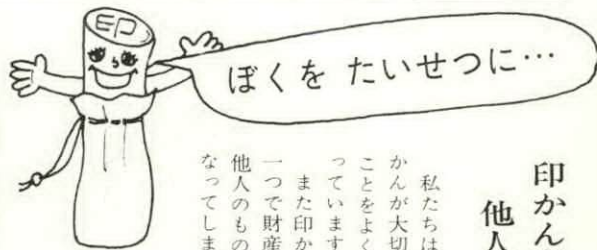 印
ぼくを たいせつに…
印かん
他人
私たちは
かんが大切
ことをよく
っています
また印か
一つで財産
他人のもの
なってしま